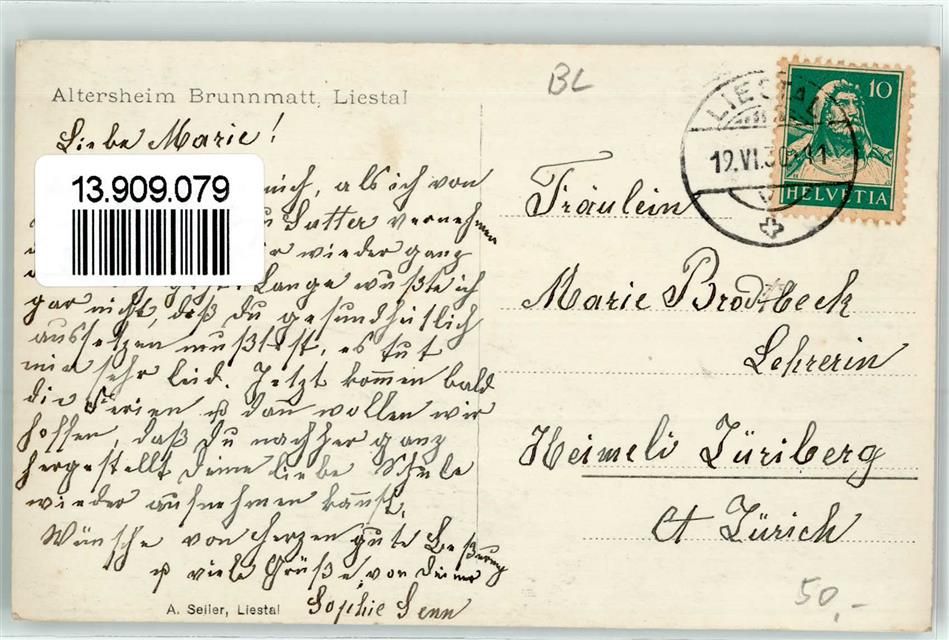 Altersheim Brunnmatt, Liestal
BL
Liebe Marie!
13.909.079
mich, als ich von
Sutter vernehmen
wieder ganz
Lange wußte ich
gar nicht, daß Du gesundheitlich
aussetzen mußtest, es tut
mir sehr leid. Jetzt kommen bald
die Ferien u dan wollen wir
hoffen, daß Du nachher ganz
hergestellt Deine liebe Schule
wieder aufnehmen kannst.
Wünsche von Herzen gute Beßerung
u viele Grüße, von Deiner
Sophie Senn
A. Seiler, Liestal
LIESTAL
12.VI.30
10
HELVETIA
Fräulein
Marie Brodtbeck
Lehrerin
Heimeli Züriberg
Ct Zürich
50,-